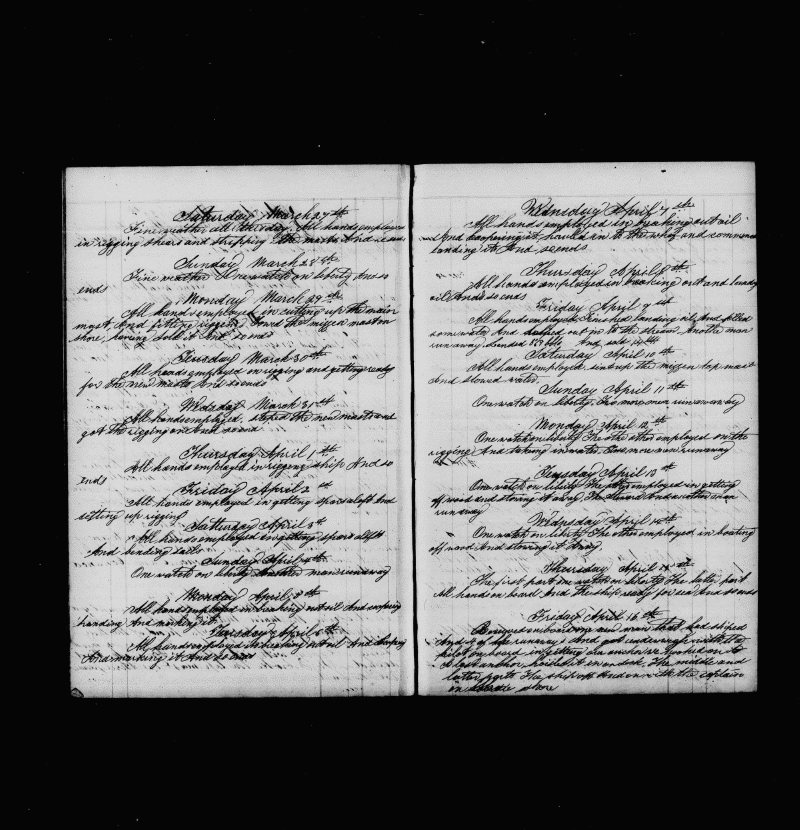 Saturday March 27th
Fine weather all the day. All hands employed
in rigging shears and stripping the masts And so ends
Sunday March 28th
Fine weather One watch on liberty And so
ends
Monday March 29th
All hands employed in cutting up the main
mast And fitting rigging the mizzen mast on
shore, having sold it And so ends
Tuesday March 30th
All hands employed on rigging and getting ready
for the new masts And so ends
Wedsday March 31st
All hands employed, the new masts and
got the rigging on And so ends
Thursday April 1th
All hands employed in rigging ship And so
ends
Friday April 2
All hands employed in getting spars aloft And
setting up rigging
Saturday April 3
All hands employed in getting spars aloft
And bending sails
Sunday April 4th
One watch on liberty Another man runaway
Monday April 5th
All hands employed in breaking out oil And coopering
And marking it
Tuesday April 6th
All hands employed in breaking out oil And
And marking it And so ends
Wednsday April 7th
All hands employed in breaking out oil
And coopering it in to the and commenced
landing it And so ends
Thursday April 8th
All hands employed in breaking out and landing
oil And so ends
Friday April 9th
All hands employed Finished landing oil And filled
some water And out in to the stream Another man
runaway Landed bbls And sold
Saturday April 10th
All hands employed, sent up the mizzen top mast
And stowed water
Sunday April 11th
One watch on liberty Two more men runaway
Monday April 12th
One watch on liberty The other employed on the
rigging And taking in water One more man runaway
Tuesday April 13th
One watch on liberty The other employed in getting
off wood and storing it away The steward And another man
runaway
Wednsday April 14th
One watch on liberty The other employed in boating
off wood And storing it Away
Thursday April 15th
The first part one watch on liberty The latter part
All hands on board And the ship ready for sea And so ends
Friday April 16th
Received on board new men that had shiped
And of the runaways And got underway with the
pilot on board in getting the anchor we hooked on to
A lost anchor, hoisted it in on deck The middle and
latter parts The ship off And on with the captain
on shore